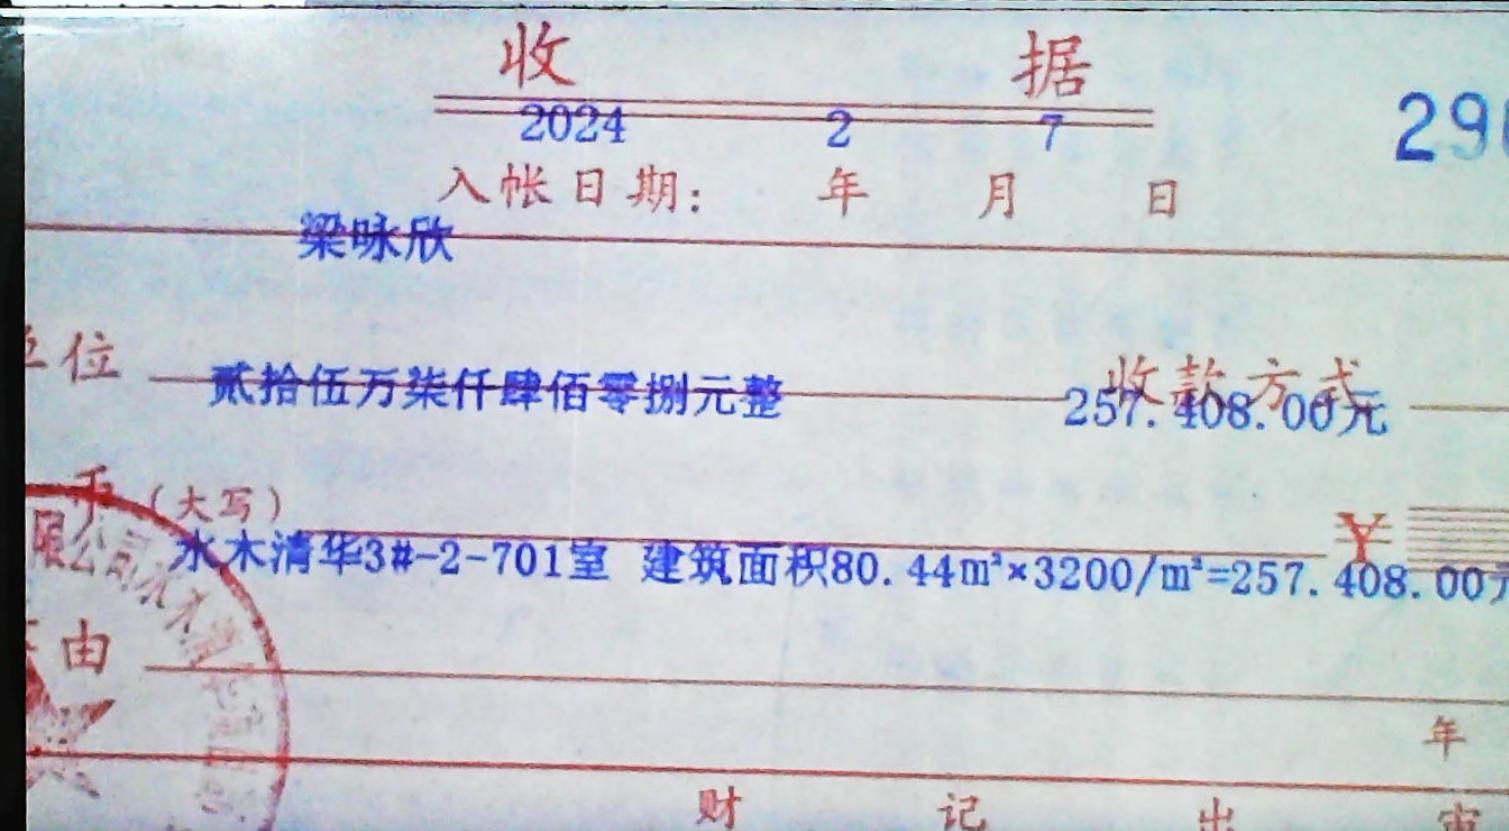 收 据
2024 2 7
入帐日期: 年 月 日
梁咏欣
位
收款方式
贰拾伍万柒仟肆佰零捌元整 257.408.00元
币（大写） ¥
水木清华3#-2-701室 建筑面积80.44m²×3200/m²=257.408.00元
限公司水木清
由
年
财 记 出 审